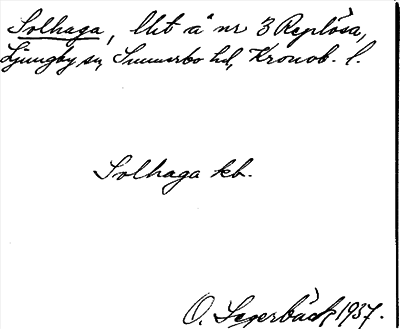 Solhaga, lht å nr 3 Replösa,
Ljungby sn, Sunnerbo hd, Kronob. l.
Solhaga kb.
O. Segerbäck 1937.